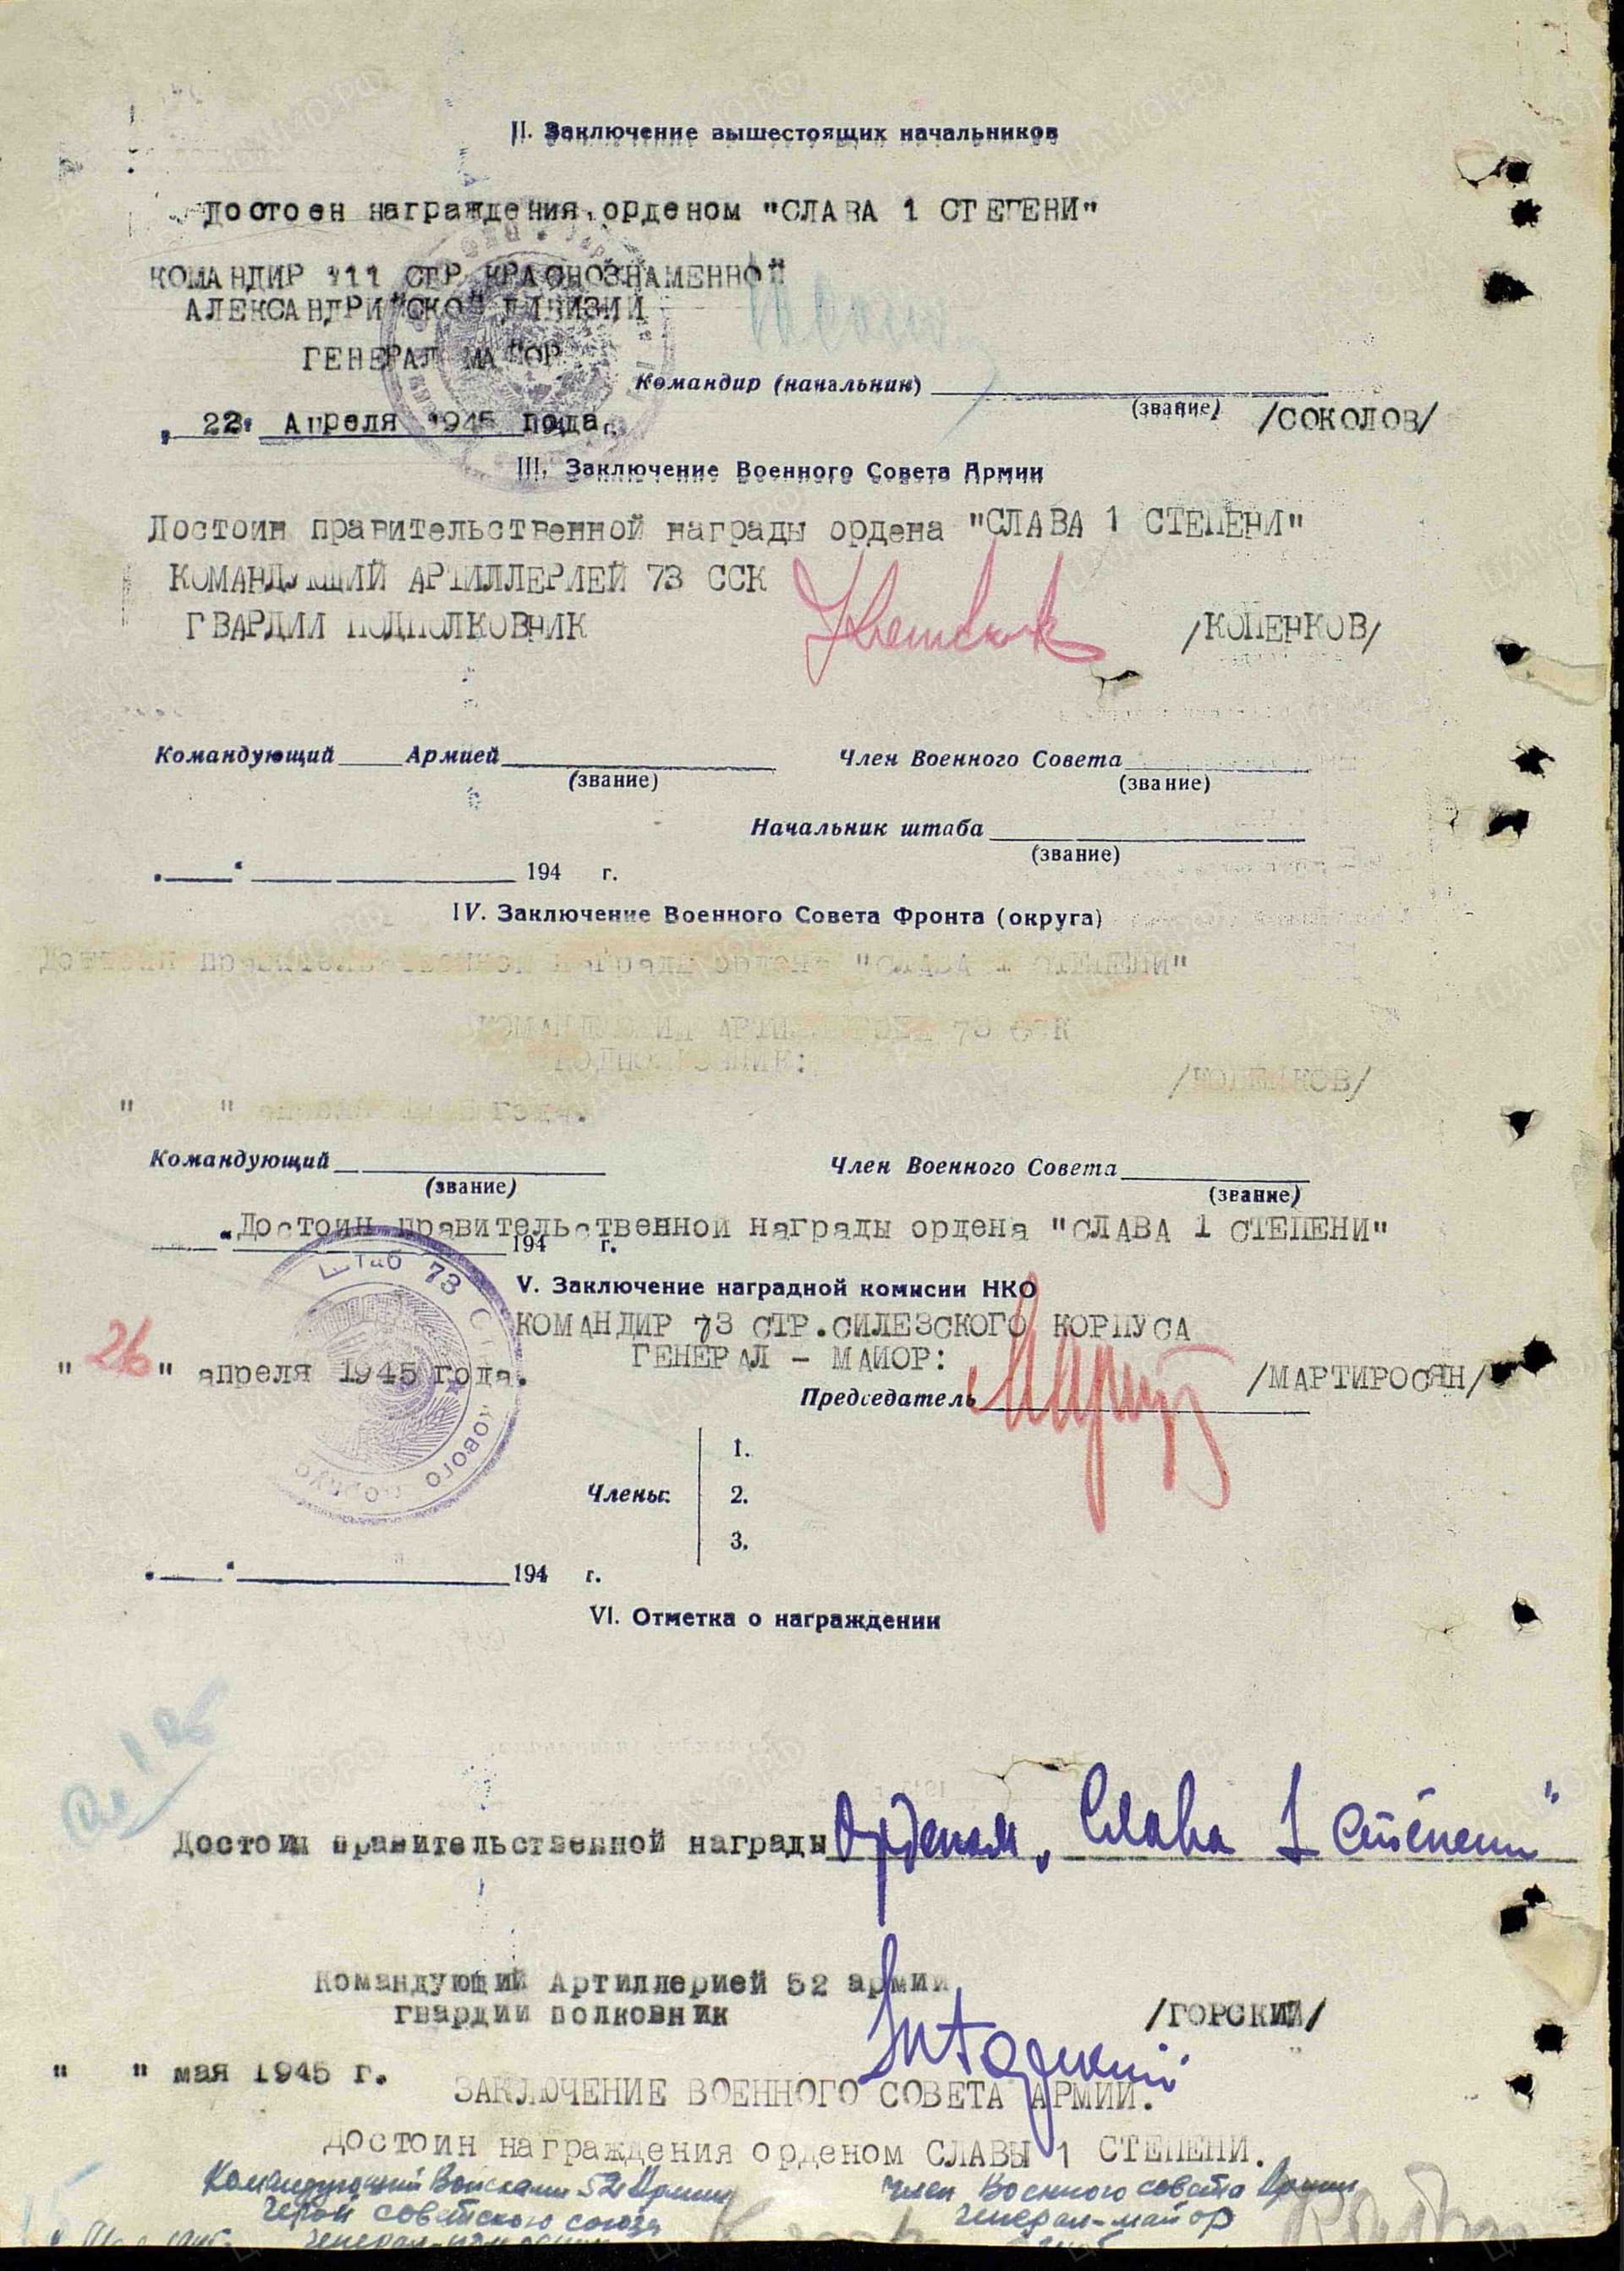 II. Заключение вышестоящих начальников
достоен награждения орденом "СЛАВА 1 СТЕПЕНИ"
КОМАНДИР 111 СТР КРАСНОЗНАМЕННОЙ
АЛЕКСАНДРИЙСКОЙ ДИВИЗИИ
ГЕНЕРАЛ МАЙОР
Командир (начальник)
(звание)
/СОКОЛОВ/
" 22 " Апреля 1945 года
III. Заключение Военного Совета Армии
Достоин правительственной награды ордена "СЛАВА 1 СТЕПЕНИ"
КОМАНДУЮЩИЙ АРТИЛЛЕРИЕЙ 73 ССК
ГВАРДИИ ПОДПОЛКОВНИК /КОПЕНКОВ/
Командующий Армией Член Военного Совета
(звание) (звание)
Начальник штаба
(звание)
194 г.
IV. Заключение Военного Совета Фронта (округа)
Достоин правительственной награды ордена "СЛАВА 1 СТЕПЕНИ"
КОМАНДУЮЩИЙ АРТИЛЛЕРИЕЙ 73 ССК
ПОДПОЛКОВНИК: /КОПЕНКОВ/
" "
Командующий Член Военного Совета
(звание) (звание)
Достоин правительственной награды ордена "СЛАВА 1 СТЕПЕНИ"
194 г.
Штаб 73
V. Заключение наградной комисии НКО
КОМАНДИР 73 СТР.СИЛЕЗСКОГО КОРПУСА
ГЕНЕРАЛ - МАЙОР:
" 26 " апреля 1945 года. /МАРТИРОСЯН/
Председатель
Члены:
1.
2.
3.
194 г.
VI. Отметка о награждении
Достоин правительственной награды Орденом "Слава 1 степени"
Командующий Артиллерией 52 армии
гвардии полковник /ГОРСКИЙ/
" " мая 1945 г.
ЗАКЛЮЧЕНИЕ ВОЕННОГО СОВЕТА АРМИИ.
достоин награждения орденом СЛАВЫ 1 СТЕПЕНИ.
Командующий Войсками 52 Армии Член Военного совета Армии
Герой советского союза генерал-майор